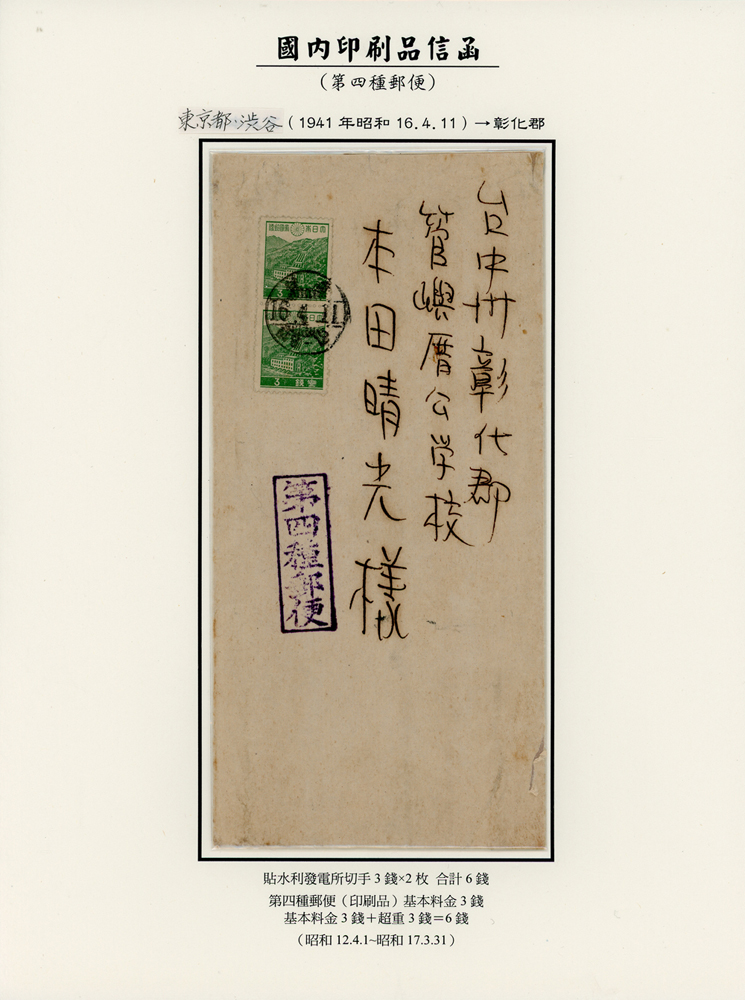 國內印刷品信函
(第四種郵便)
東京都·渋谷(1941年昭和16.4.11)→彰化郡
台中州彰化郡
管嶼厝公学校
本田晴光様
大日本帝國郵便
3
16.4.11
大日本帝國郵便
3 錢
第四種郵便
貼水利發電所切手3錢×2枚 合計6錢
第四種郵便(印刷品)基本料金3錢
基本料金3錢+超重3錢=6錢
(昭和12.4.1~昭和17.3.31)